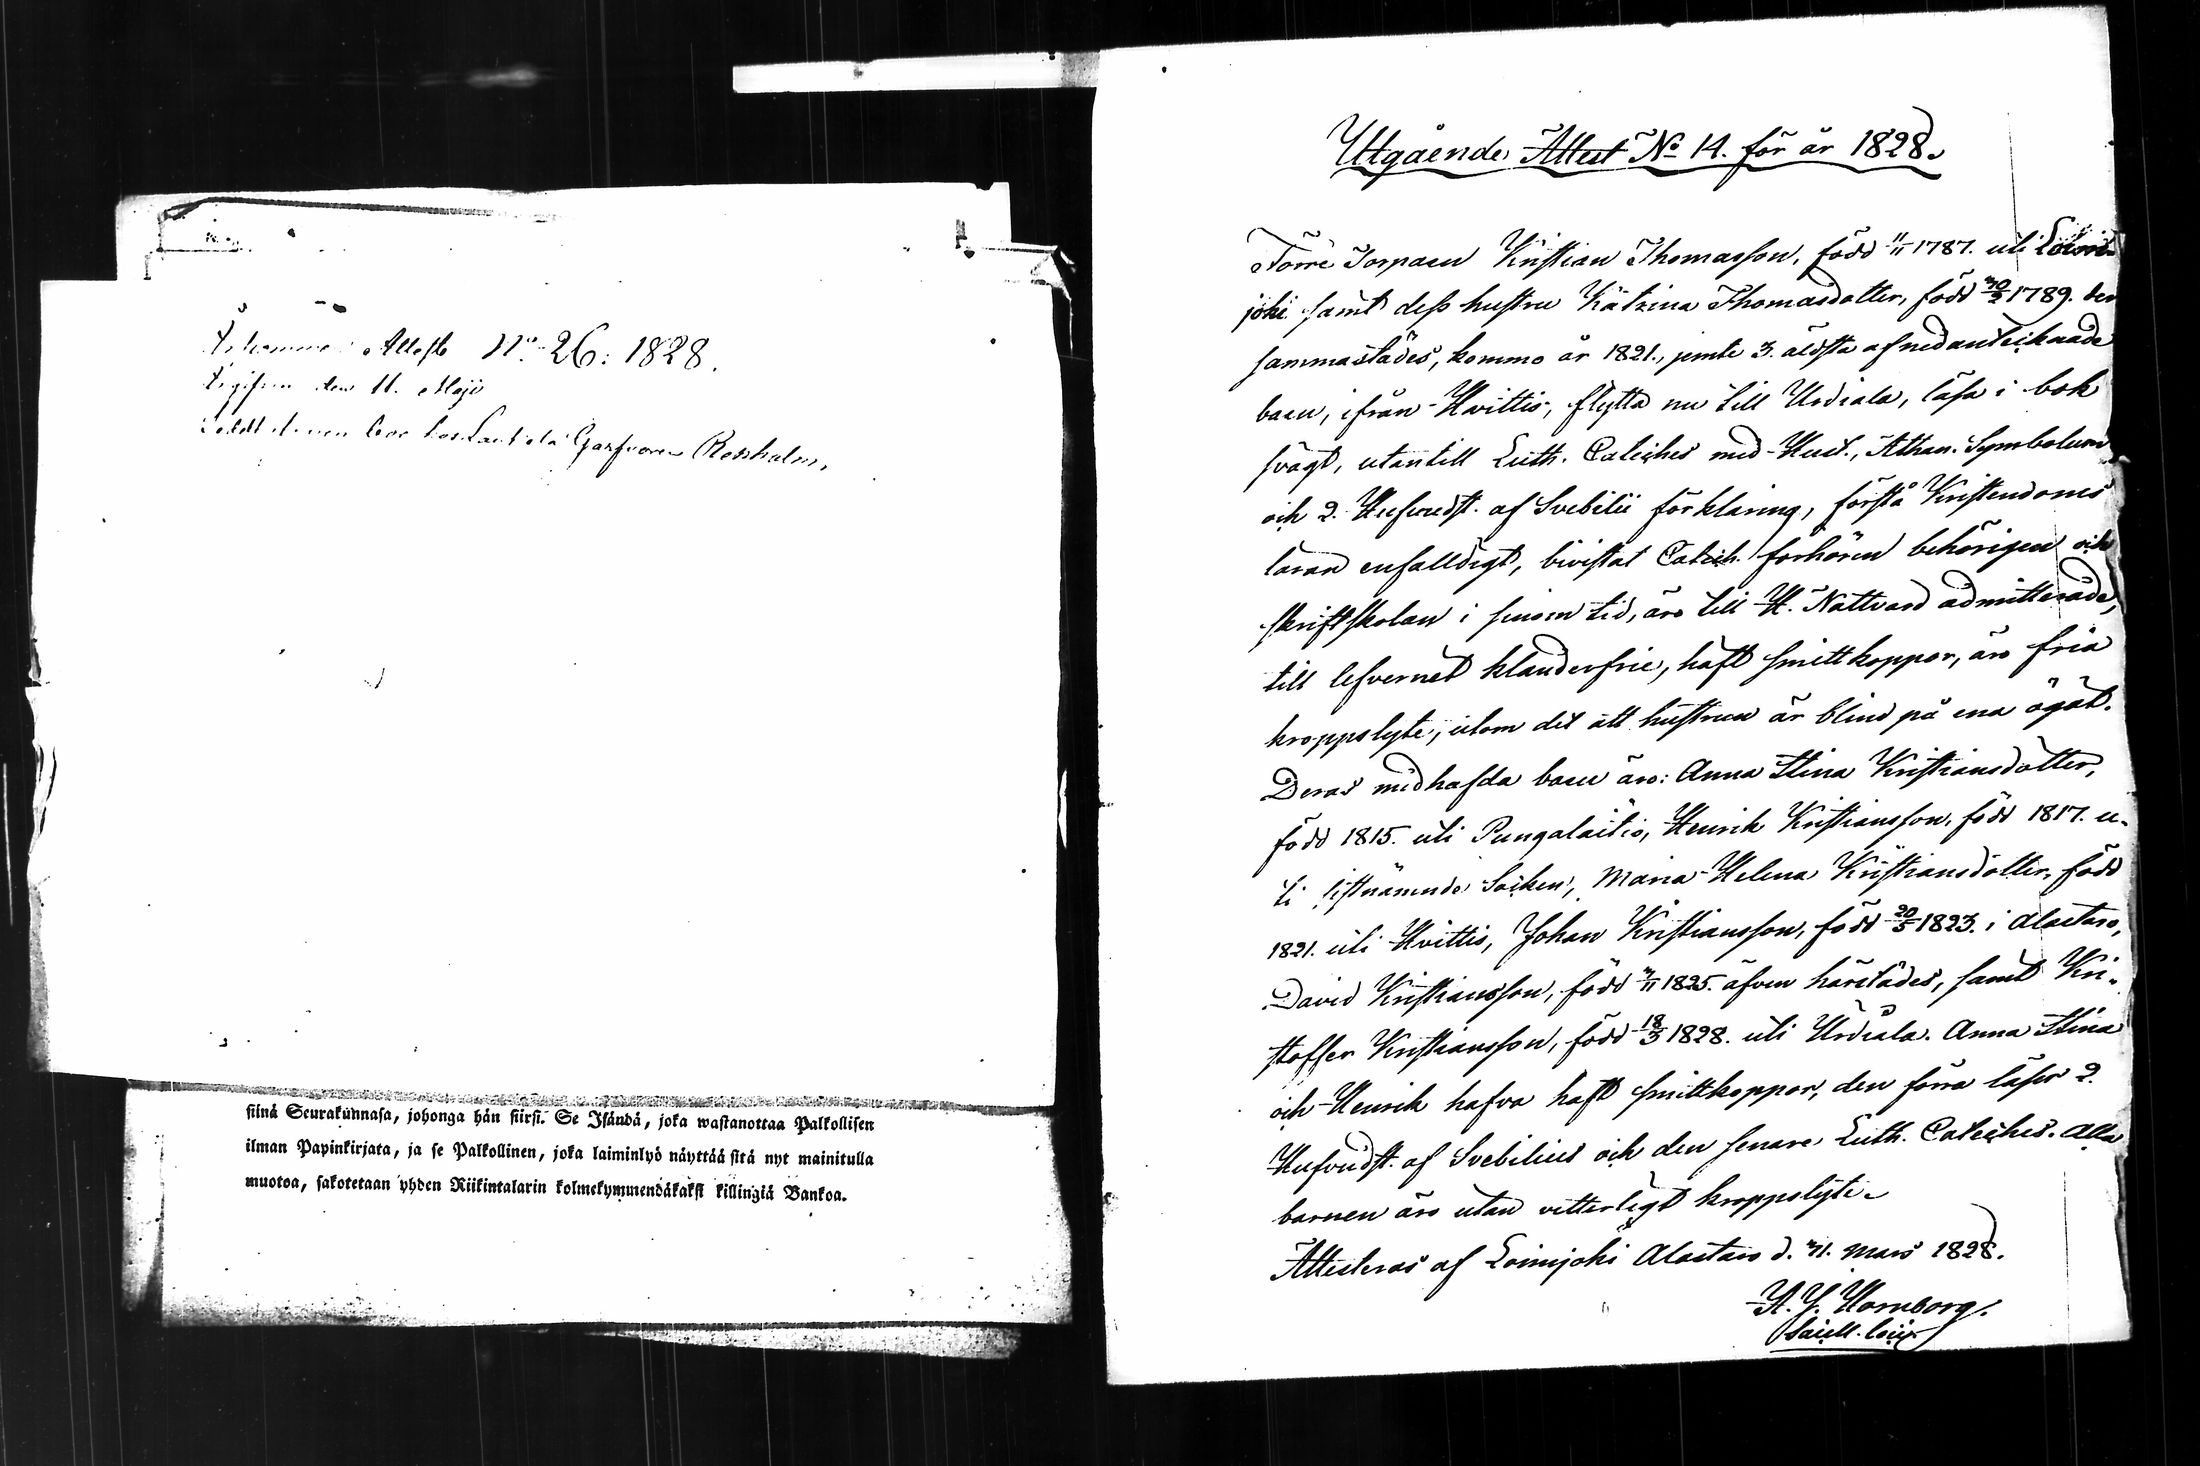 Attest No. 26: 1828.
den 11. Maji
Rossholm,
siinä Seurakunnasa, johonga hän siirsi. Se Isändä, joka wastanottaa Palkollisen
ilman Papinkirjata, ja se Palkollinen, joka laiminlyö näyttää sitä nyt mainitulla
muotoa, sakotetaan yhden Riikintalarin kolmekymmendäkaksi killingiä Bankoa.
Utgående Attest No 14. för år 1828.
Förre Torparen Kristian Thomasson, född 1787. uti Loimi-
joki samt dess hustru Katrina Thomasdotter, född 1789. der
sammastädes, kommo år 1821., jemte 3. äldsta af nedanteiknade
barn, ifrån Hvittis, flytta nu till Urdiala, läsa i bok
svagt, utantill Luth. Cateches med Hust., Athan. Symbolum
och 2. Hufvudst. af Svebilii förklaring, förstå Kristendoms
läran enfalldigt, bivistat Catech. förhören behörigen och
skriftskolan i sinom tid, äro till H. Nattvard admitterade,
till lefvernet klanderfrie, haft smittkoppor, äro fria
kroppslyte, utom det att hustrun är blind på ena ögat.
Deras medhafda barn äro: Anna Stina Kristiansdotter,
född 1815. uti Pungalaitio, Henrik Kristiansson, född 1817. u-
ti sistnämnde Socken, Maria Helena Kristiansdotter, född
1821. uti Hvittis, Johan Kristiansson, född 20/5 1823. i Alastaro,
David Kristiansson, född 1825. äfven härstädes, samt Kri-
stoffer Kristiansson, född 18/3 1828. uti Urdiala. Anna Stina
och Henrik hafva haft smittkoppor, den förra läser 2.
Hufvudst. af Svebilius och den senare Luth. Cateches. Alla
barnen äro utan vitterligt kroppslyte.
Attesteras af Loimijoki Alastaro d. 31. Mars 1828.
H. J. Hornborg.